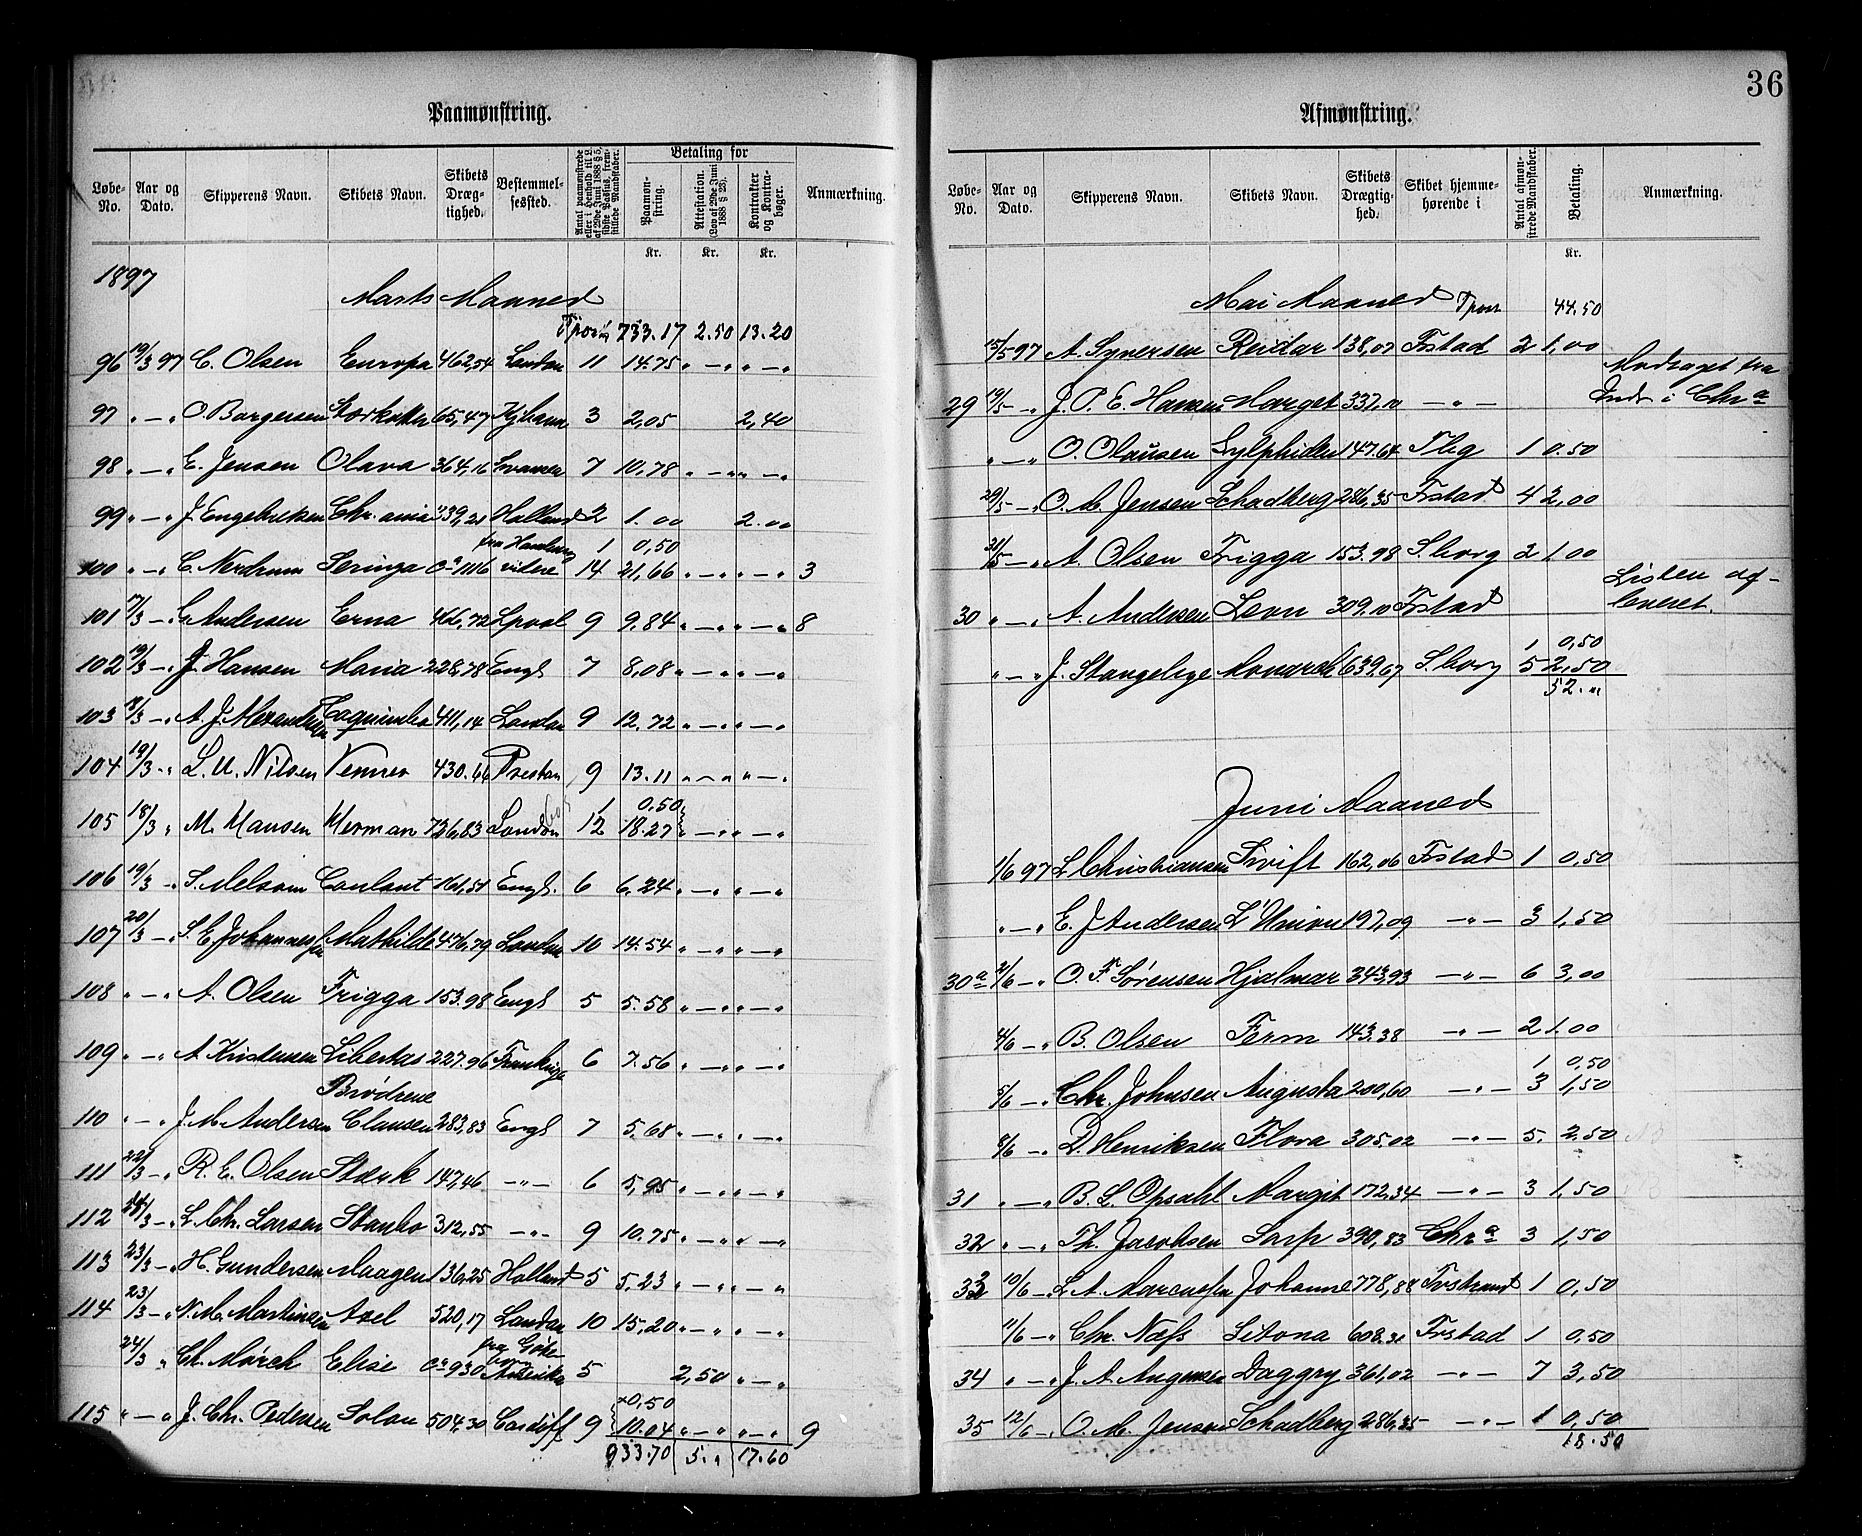 36
Paamønstring.
Løbe-No. Aar og Dato. Skipperens Navn. Skibets Navn. Skibets Dræg-tighed. Bestemmel-sessted. Antal paamønstrede eller i Henhold til L. af 29de Juni 1888 § 5, sidste Passus, frem-stillede Mandskaber. Betaling for Paamøn-string. Attestation. (Lov af 29de Juni 1888 § 23). Kontrakter og Kontra-bøger. Anmærkning.
Kr. Kr. Kr.
1897
Marts Maaned
Tport 733.17 2.50 13.20
96 19/3 97 C. Olsen Europa 462,54 London 11 14.75 " — " " — "
97 " — " O. Borgersen Stærkodder 65,47 Kjbhavn 3 2,05 2,40
98 " — " E. Jensen Olava 364,16 Svansea 7 10.78 " — " " — "
99 " — " J. Engebretsen Chr.ania 339,21 Holland 2 1.00 2.00
fra Hamburg 1 0,50
100 " — " C. Nerdrum Seringa ca 1116 videre 14 21,66 " — " " — " 3
101 17/3 — " G. Andersen Erna 466,72 Lpool 9 9,84 " — " " — " 8
102 19/3 — " J. Hansen Maria 228,78 Engl 7 8,08 " — " " — "
103 18/3 — " A. J. Alexandersen Coquimbo 411,14 London 9 12.72 " — " " — "
104 19/3 - " L. U. Nilsen Venner 430.66 Preston 9 13.11 " — " " — "
1 0.50
105 18/3 " M. Hansen Herman 726,83 London 12 18.27 " — " " — "
106 19/3 — " S. Melsom Conlant 161,51 Engl. 6 6.24 " — " " — "
107 20/3 — " S. E. Johannessen Mathilde 476,79 London 10 14.54 " — " " — "
108 " — " A. Olsen Frigga 153.98 Engl 5 5.58 " — " " — "
109 " — " A. Kristensen Libertas 227.96 Frankrige 6 7.56 " — " " — "
Brødrene
110 " — " J. M. Andersen Clausen 283,83 Engl 7 5,68 " — " " — "
111 22/3 — " R. E. Olsen Stærk 147,46 — " — 6 5,95 " — " " — "
112 — " L. Chr. Larsen Stanbo 312,55 — " — 9 10.75 " — " " — "
113 23/3 — " H. Gundersen Maagen 136,25 Holland 5 5,23 " — " " — "
114 23/3 — " N. M. Martinsen Axel 520,17 London 10 15,20 " — " " — "
fra Göte-
borg
24/3 " Ch. Mörch Elise ca 930 Amerika 5 2,50 " — "
0,50
115 " — " J. Chr. Pedersen Solon 504,30 Cardiff 9 10.04 " — " " — " 9
933.70 5." 17.60
Afmønstring.
Løbe-No. Aar og Dato. Skipperens Navn. Skibets Navn. Skibets Drægtig-hed. Skibet hjemme-hørende i Antal afmøn-strede Mandskaber. Betaling. Anmærkning.
Kr.
Mai Maaned Tport 44.50
15/5 97 A. Synersen Reidar 138,07 Fstad 2 1,00
Modtaget fra
29 19/5 — " J. P. E. Hansen Marget 337,10 — " — Indr i Chra
" — " O. Olaussen Sylphiden 147.64 Tbg 1 0.50
29/5 — " O. M. Jensen Schadberg 286,35 Frstad 4 2,00
31/5 — " A. Olsen Frigga 153.98 S.borg 2 1.00
Listen af-
30 " — " A. Andersen Leon 309,10 Frstad leveret.
1 0,50
" — " J. Stangebye Monarch 639,67 S.borg 5 2,50
52."
Juni Maaned
1/6 97 L. Christiansen Swift 162,06 Fstad 1 0,50
" — " E. J. Andersen L'Union 197,09 — " — 3 1,50
30a 2/6 — " O. F. Sørensen Hjalmar 343,93 — " — 6 3,00
4/6 — " B. Olsen Ferm 143.38 — " — 2 1.00
1 0,50
5/6 — " Chr. Johnsen Augusta 200,60 — " — 3 1,50
8/6 — " D. Henriksen Flora 305.02 — " — 5. 2.50
31 " — " B. L. Opsahl Margit 172,34 — " — 3 1,50
32 " — " Th. Jacobsen Sarp 390,83 Chra 3 1,50
33 10/6 — " L. A. Marcussen Johanne 778,88 Frstrand 1 0,50
11/6 — " Chr. Næss Sitona 608.31 Frstad 1 0,50
34 " — " J. A. Augensen Daggry 361,02 — " — 7 3,50
35 12/6 — " O. M. Jensen Schadberg 286,35 — " — 1 0,50
18.50